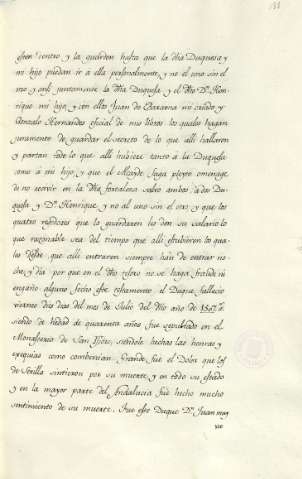 esten dentro y la guarden hasta que la dha Duquesa y
mi hijo puedan ir a ella personalmente, y no el uno sin el
otro y con juntamente la dha Duquesa y el dho Dn. Hen-
rique mi hijo, y con ellos Juan de mi criado, y
Gonzalo Hernandes oficial de mis libros los quales hagan
juramento de guardar el secreto de lo que alli hallaren
y partan todo lo que alli hubiese tanto a la Duquesa
como a mi hijo y que el Alcayde haga pleyto omenage
de no acoxir en la dha fortaleza salvo ambos a dos Du-
quesa y Dn. Henrique, y no al uno sin el otro y que los
quatro que la guardaren les den su salario lo
que razonable sea del tiempo que alli estubieren los qua-
les todos que alli entraren siempre han de entrar no-
che, y dia por que en el dho no se haga fraude ni
engaño alguno fecho esto christiamente el Duque fallecio
diez dias del mes de Julio del dho año de 1507 a
siendo de hedad de quarenta años fue sepultado en el
Monasterio de San Isidro, siendole hechas las honras y
exequias como combenian. Grande fue el Dolor que los
de Sevilla sintieron por su muerte, y en todo su estado
y en la mayor parte del Andalucia fue hecho mucho
sentimiento de su muerte. Fue este Duque Dn. Juan muy